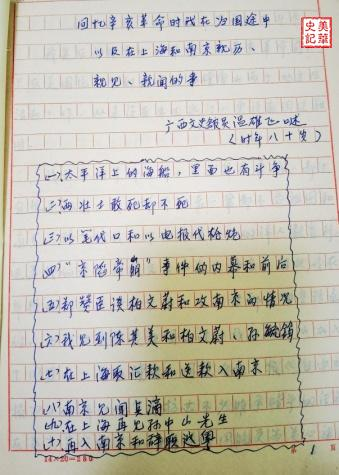 美華史記
回忆辛亥革命时我在归国途中
以及在上海和南京亲历、
亲见、亲闻的事
广西文史馆员温雄飞口述
(时年八十岁)
(一)太平洋上的海船,里面也有斗争
(二)两壮士敢死却不死
(三)以笔代口和以电报代枪炮
(四)"京陷帝崩"事件的内幕和前后
(五)郑赞臣谈柏文蔚和攻南京的情况
(六)我见到陈其美和柏文蔚、孙毓筠
(七)在上海取汇款和送款入南京
(八)南京见闻点滴
(九)在上海再见孙中山先生
(十)再入南京和辞职返粤
14×20=280
1